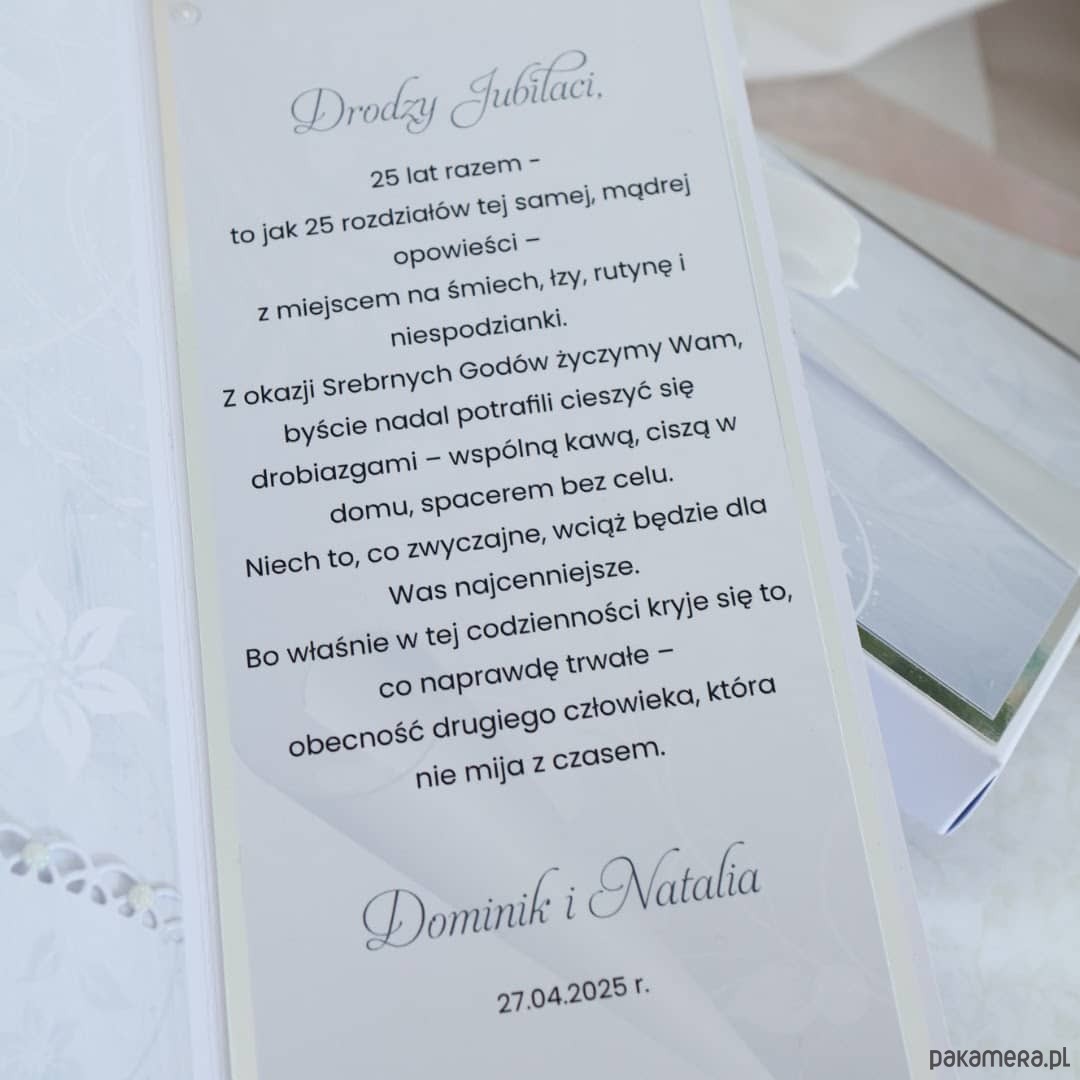 Drodzy Jubilaci,
25 lat razem -
to jak 25 rozdziałów tej samej, mądrej
opowieści –
z miejscem na śmiech, łzy, rutynę i
niespodzianki.
Z okazji Srebrnych Godów życzymy Wam,
byście nadal potrafili cieszyć się
drobiazgami – wspólną kawą, ciszą w
domu, spacerem bez celu.
Niech to, co zwyczajne, wciąż będzie dla
Was najcenniejsze.
Bo właśnie w tej codzienności kryje się to,
co naprawdę trwałe –
obecność drugiego człowieka, która
nie mija z czasem.
Dominik i Natalia
27.04.2025 r.
pakamera.pl